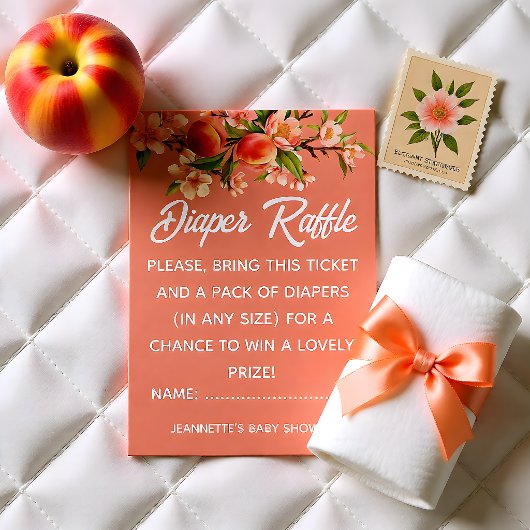 Diaper Raffle
PLEASE, BRING THIS TICKET
AND A PACK OF DIAPERS
(IN ANY SIZE) FOR A
CHANCE TO WIN A LOVELY
PRIZE!
NAME: ..........................
JEANNETTE'S BABY SHOW